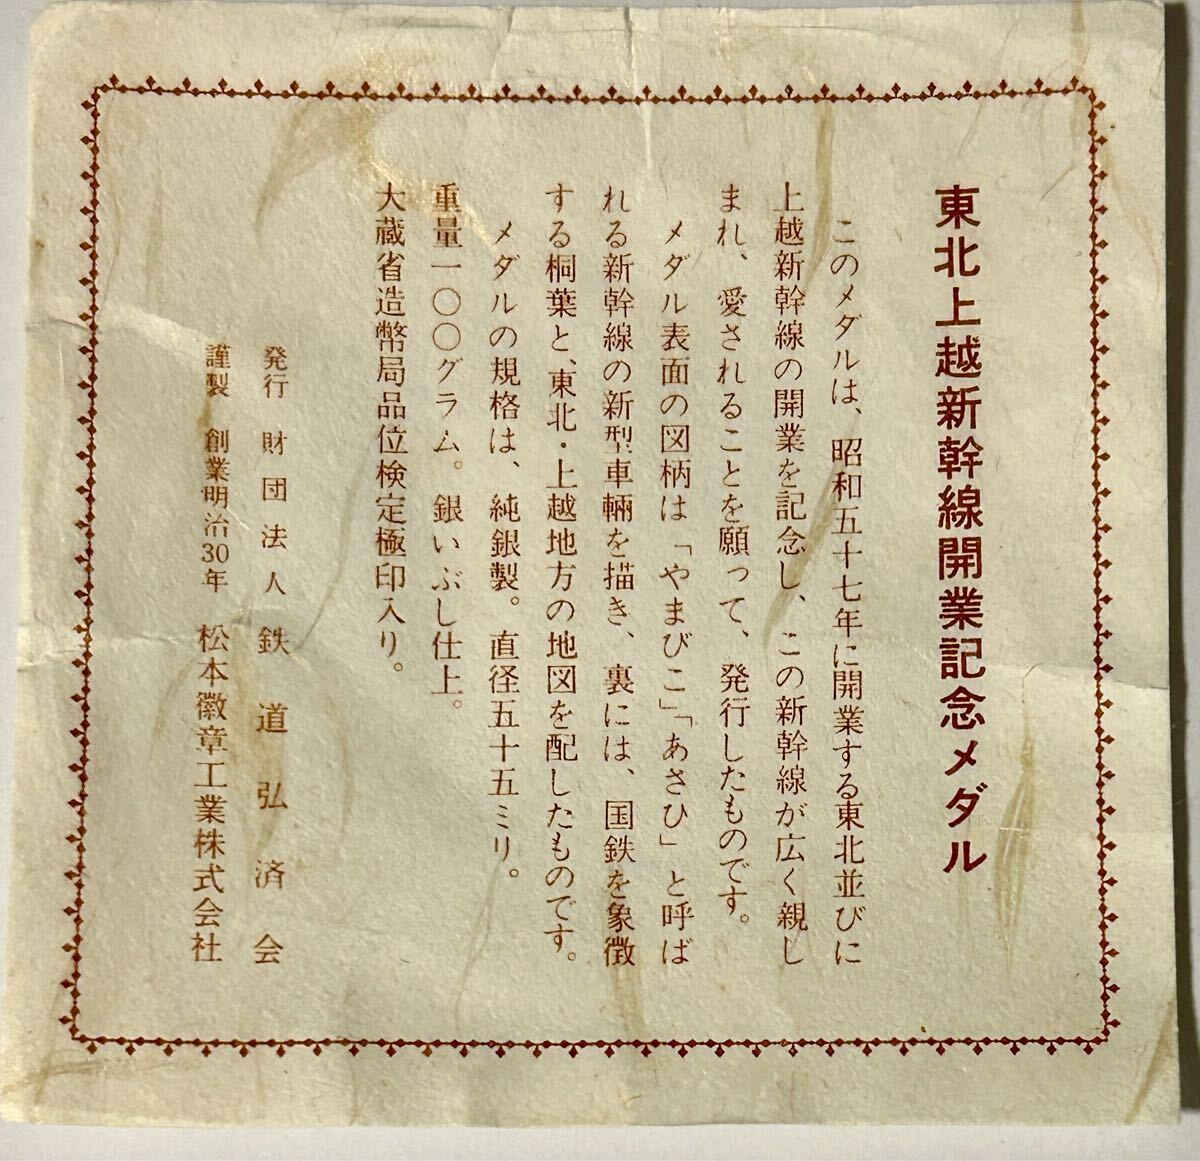 東北上越新幹線開業記念メダル
このメダルは、昭和五十七年に開業する東北並びに
上越新幹線の開業を記念し、この新幹線が広く親し
まれ、愛されることを願って、発行したものです。
メダル表面の図柄は「やまびこ」「あさひ」と呼ば
れる新幹線の新型車輛を描き、裏には、国鉄を象徴
する桐葉と、東北・上越地方の地図を配したものです。
メダルの規格は、純銀製。直径五十五ミリ。
重量一〇〇グラム。銀いぶし仕上。
大蔵省造幣局品位検定極印入り。
発行 財団法人 鉄道弘済会
謹製 創業明治30年 松本徽章工業株式会社